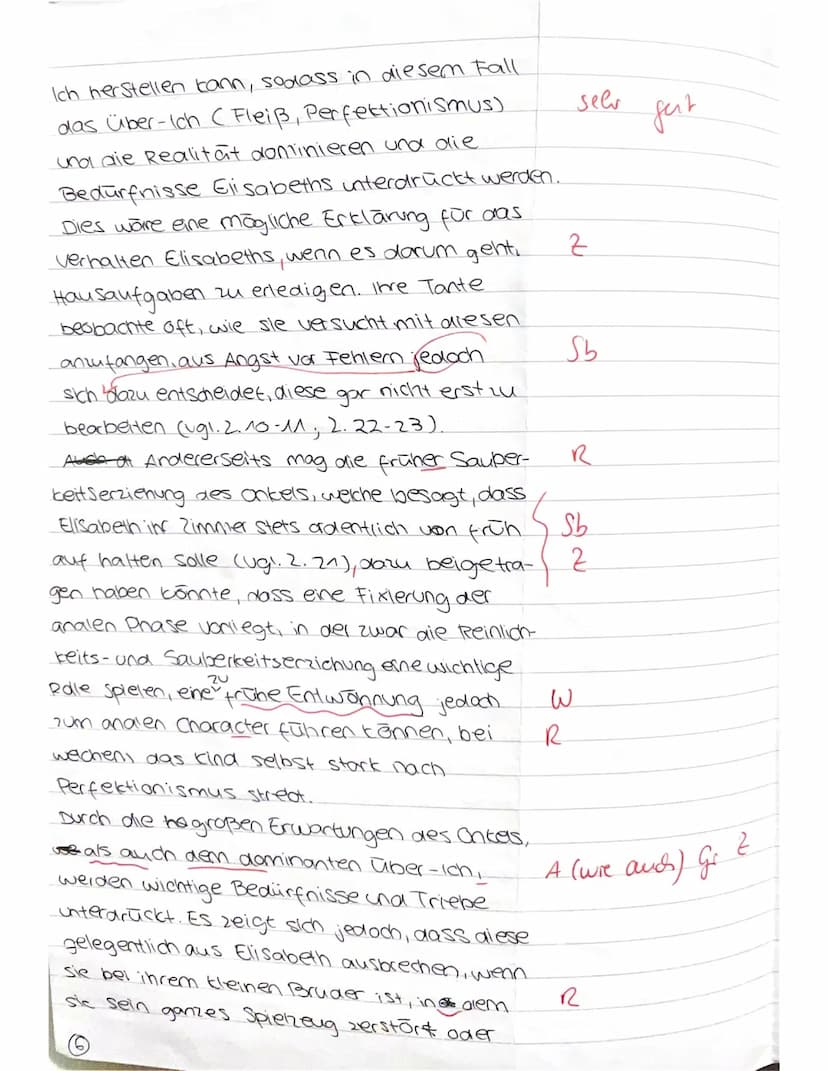 Ich herstellen kann, sodass in diesem Fall
das Über-Ich (Fleiß, Perfektionismus) sehr gut
und die Realität dominieren und die
Bedürfnisse Elisabeths unterdrückt werden.
Dies wäre eine mögliche Erklärung für das
Verhalten Elisabeths, wenn es darum geht, Z
Hausaufgaben zu erledigen. Ihre Tante
beobachte oft, wie sie versucht mit diesen
anzufangen, aus Angst vor Fehlern jedoch Sb
sich dazu entscheidet, diese gar nicht erst zu
bearbeiten (vgl. Z. 10-11, Z. 22-23).
Andererseits mag die früher Sauber- R
keitserziehung des Onkels, welche besagt, dass
Elisabeth ihr Zimmer stets ordentlich von früh Sb
auf halten solle (vgl. Z. 21), dazu beigetra- Z
gen haben könnte, dass eine Fixierung der
analen Phase vorliegt, in der zwar die Reinlich-
keits- und Sauberkeitserziehung eine wichtige
Rolle spielen, eine zu frühe Entwöhnung jedoch W
zum analen Character führen können, bei R
wechem das Kind selbst stark nach
Perfektionismus strebt.
Durch die großen Erwartungen des Onkels,
als auch dem dominanten Über-Ich, A (wie auch) Gr Z
werden wichtige Bedürfnisse und Triebe
unterdrückt. Es zeigt sich jedoch, dass diese
gelegentlich aus Elisabeth ausbrechen, wenn
sie bei ihrem kleinen Bruder ist, in dem R
sie sein ganzes Spielzeug zerstört oder
6